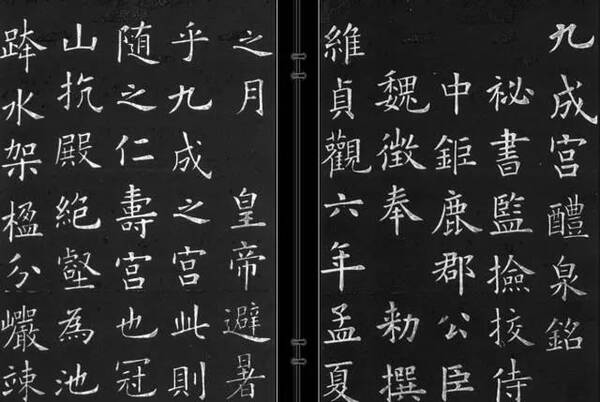 九成宮醴泉銘
祕書監撿挍侍
中鉅鹿郡公臣
魏徵奉 勑撰
維貞觀六年孟夏
之月 皇帝避暑
乎九成之宮此則
随之仁壽宮也冠
山抗殿絕壑為池
跨水架楹分巖竦